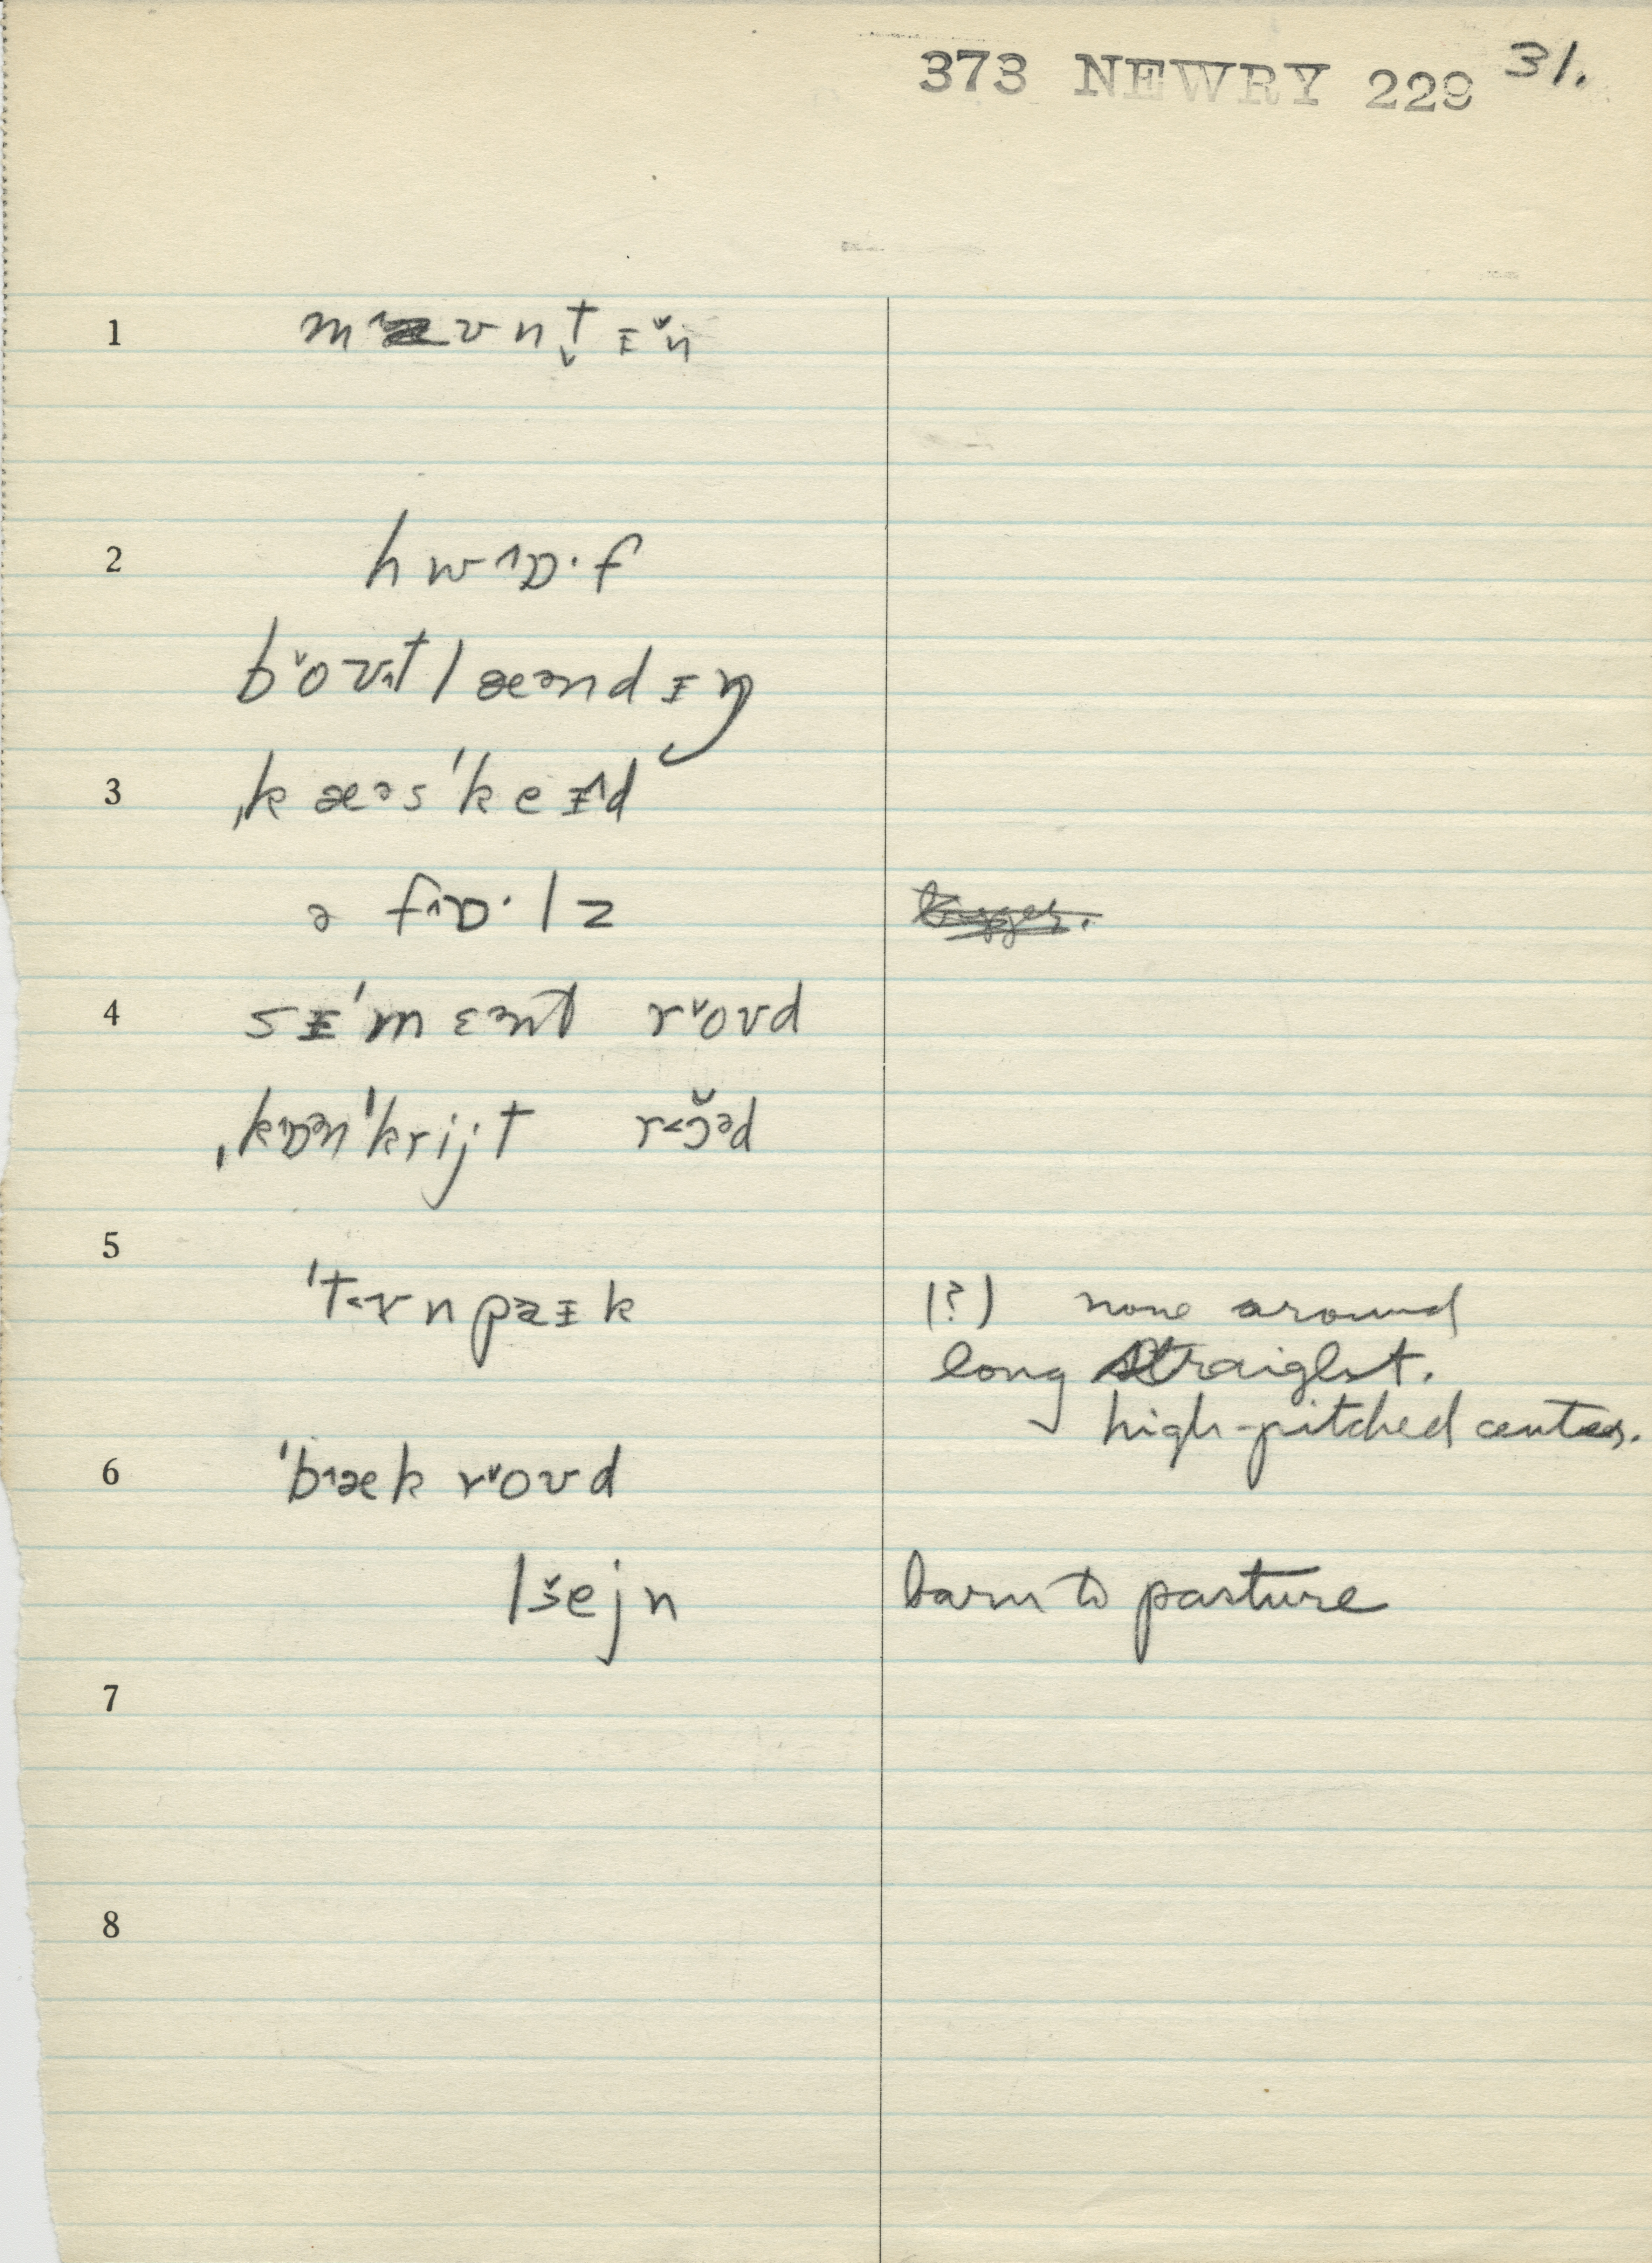 373 NEWRY 229 31.
1 m˄æʊnt̬ᵻ̆n
2 hw˄ɒ·f
b˅oʊ˄t læᵊndᵻŋ
3 ˌkæᵊs'keᵻ˄d
ə f˄ɒ·lz
4 sᵻ'mɛᵊnt r˅oʊd
ˌk˄ɒᵊn'krijt r˂ɔ̆ᵊd
5
't˂ɜnpaᵻk (?) none around
long straight.
high-pitched center.
6 'b˄æk r˅oʊd
l˅ejn barn to pasture
7
8